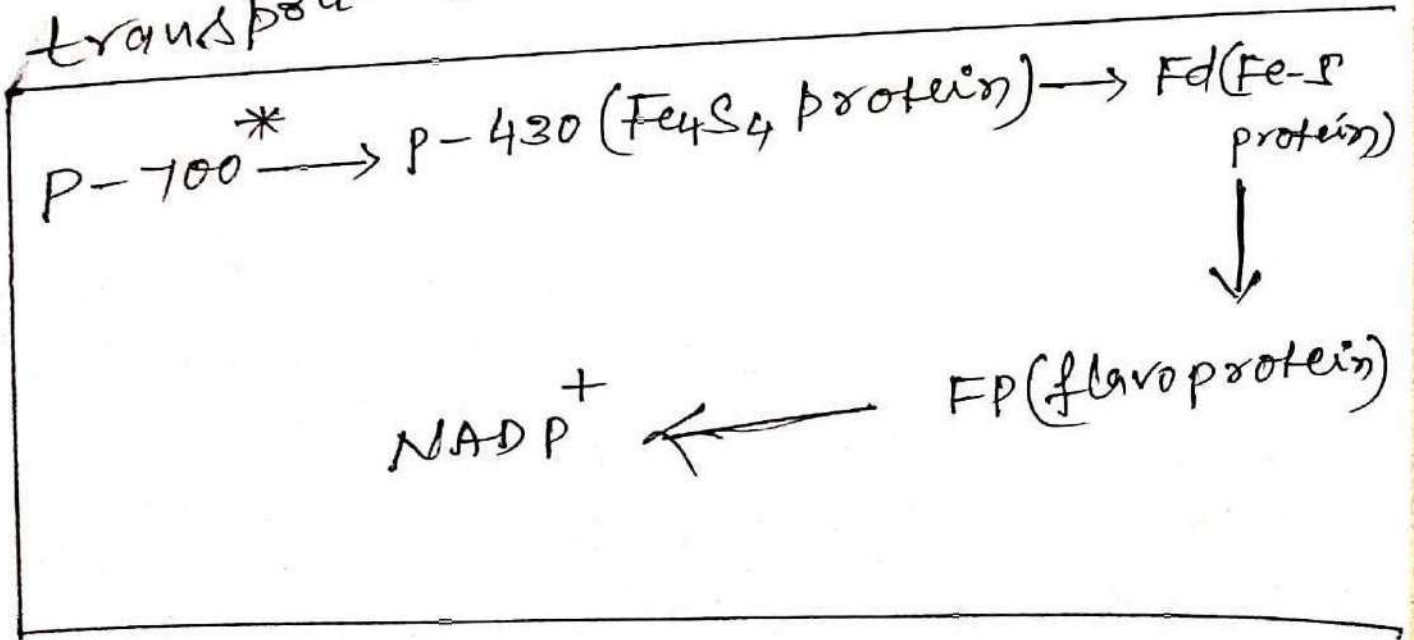 P-700* → P-430 (Fe4S4 protein) → Fd(Fe-S
protein)
↓
NADP+ ← FP(flavoprotein)